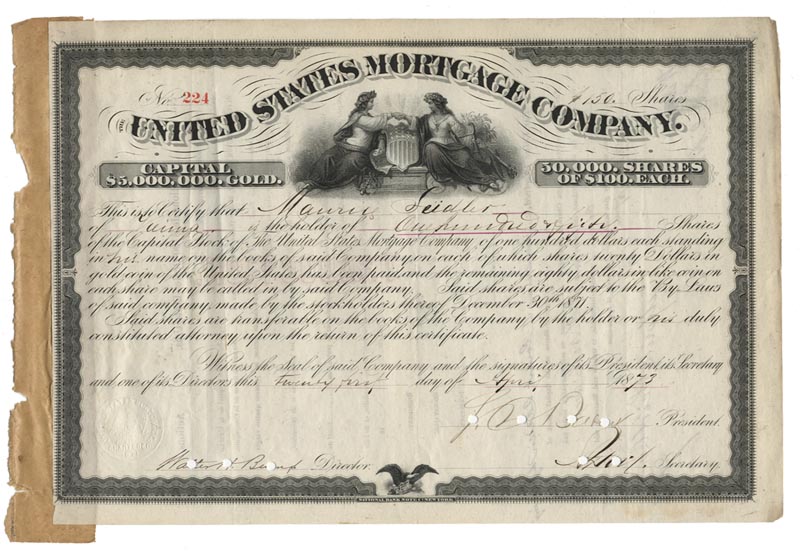 No. 224
$150. Shares
THE UNITED STATES MORTGAGE COMPANY.
CAPITAL
$5,000,000. GOLD.
50,000. SHARES
OF $100. EACH.
This is to Certify that Seidler
of is the holder of One hundred & fifty Shares
of the Capital Stock of The United States Mortgage Company, of one hundred dollars each standing
in his name on the books of said Company, on each of which shares twenty Dollars in
gold coin of the United States has been paid and the remaining eighty dollars in like coin on
each share may be called in by said Company. Said shares are subject to the By-Laws
of said company made by the stockholders thereof December 30th 1871.
Said shares are transferable on the books of the Company by the holder or his duly
constituted attorney upon the return of this certificate.
Witness the seal of said Company and the signatures of its President, its Secretary
and one of its Directors this twenty day of April 1873
President.
Director.
Secretary.
NATIONAL BANK NOTE CO. NEW YORK.